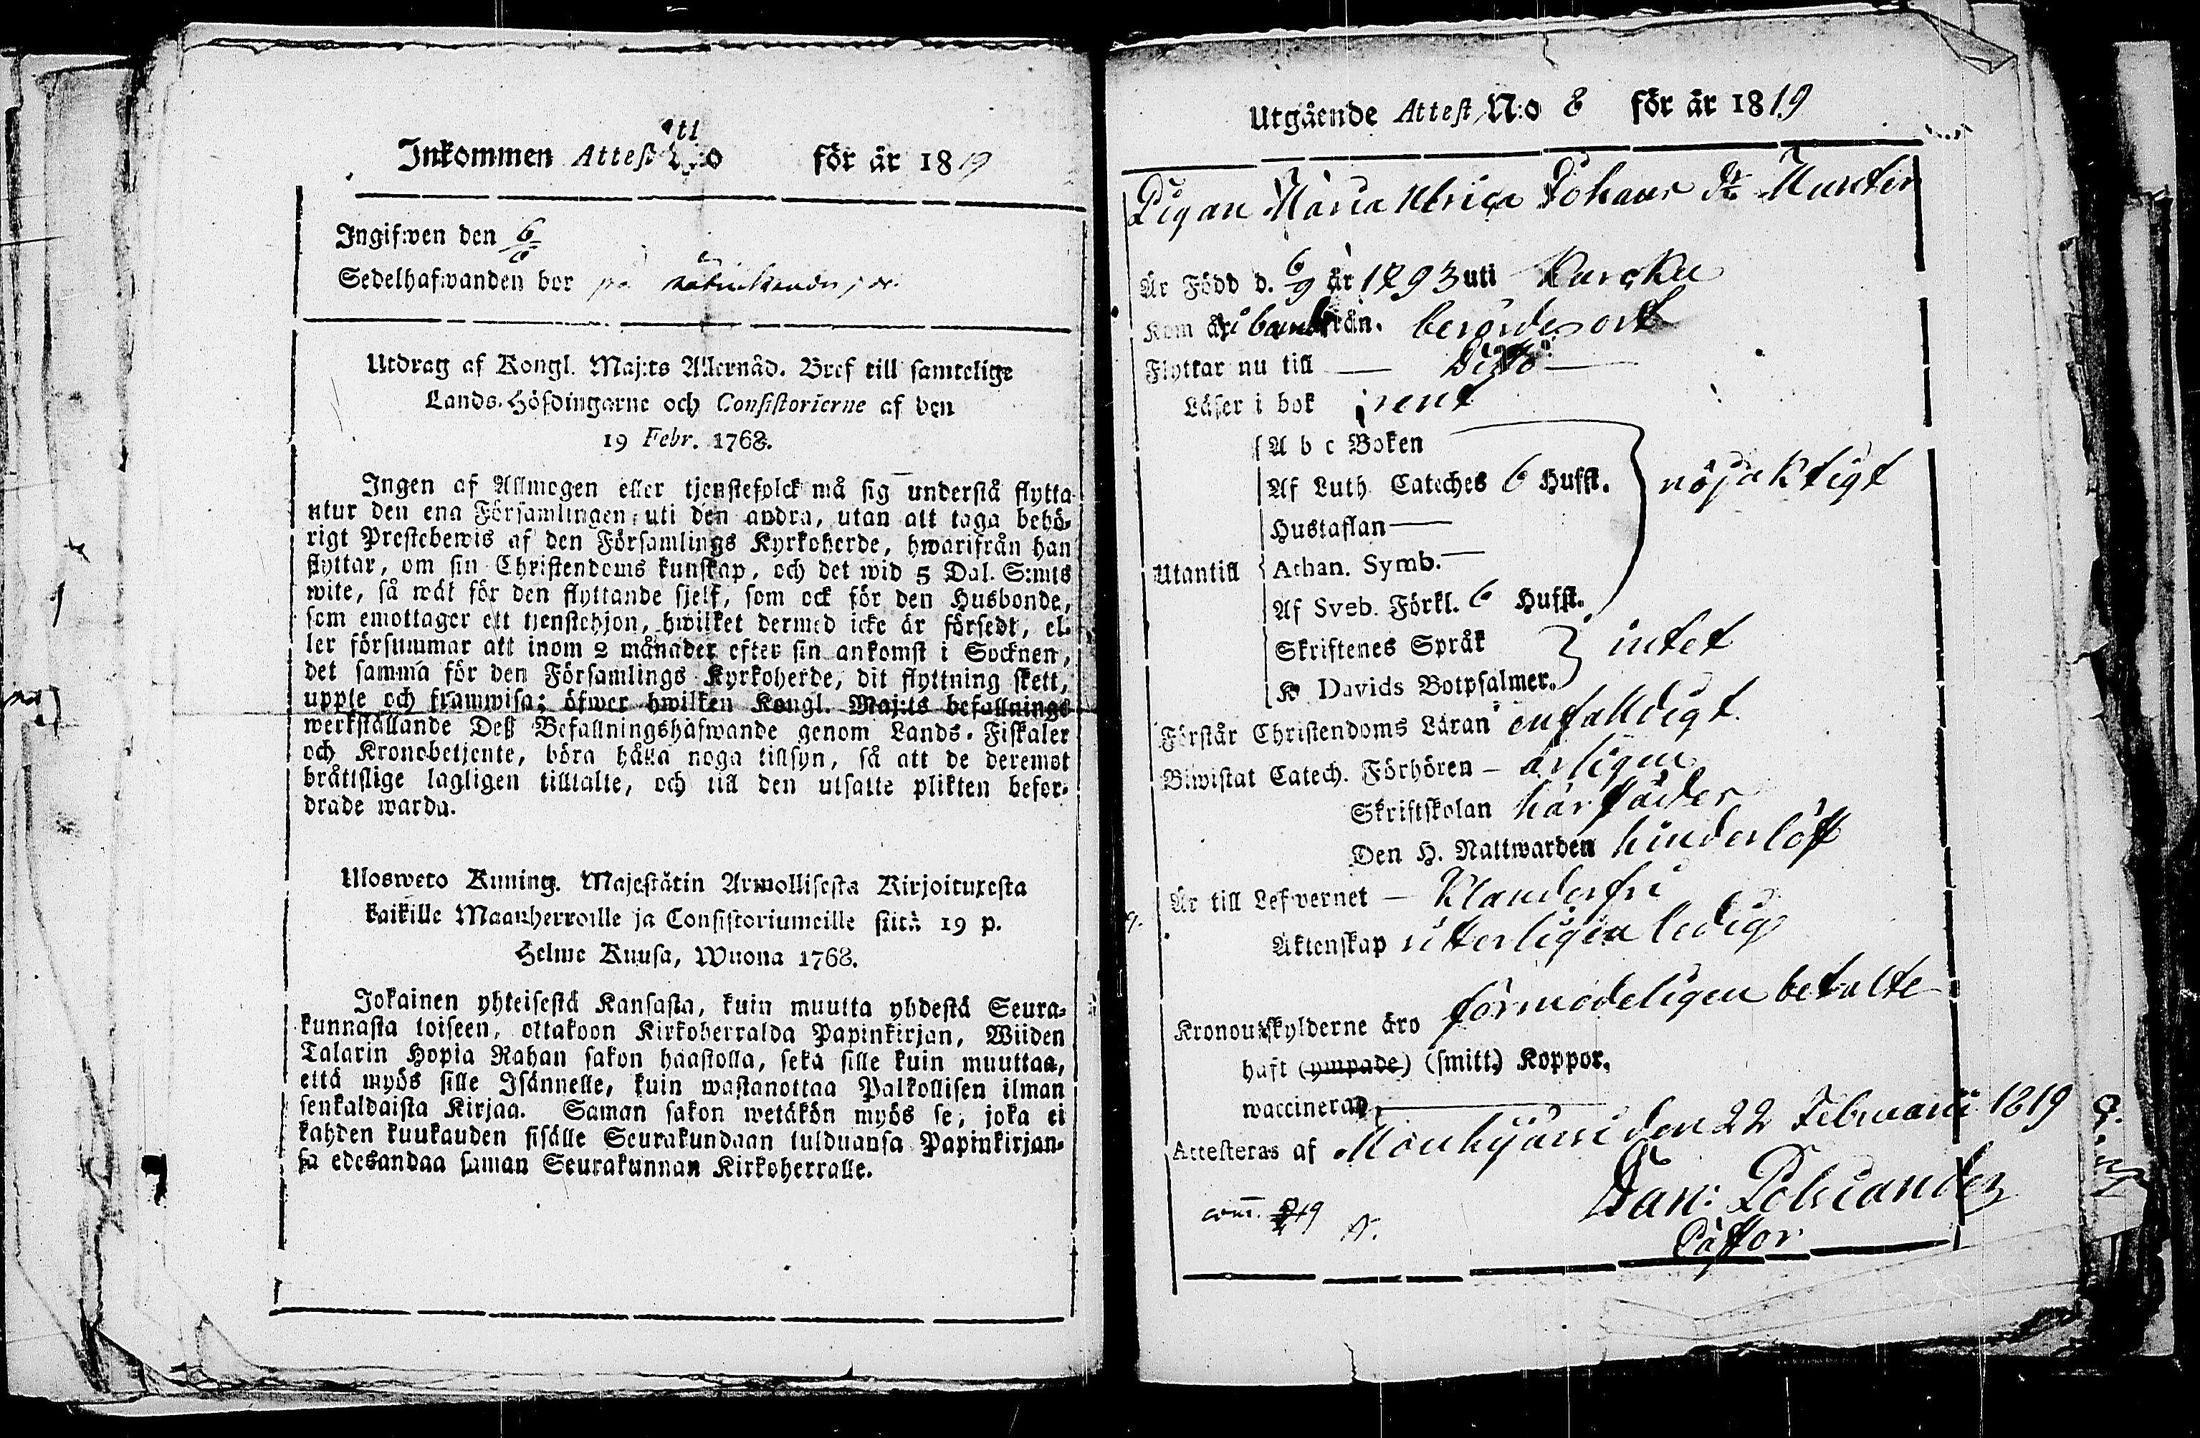 Inkommen Attest N:o för år 1819
Ingifwen den 6
Sedelhafwanden bor på
Utdrag af Kongl. Maj:ts Allernåd. Bref till samtelige
Lands-Höfdingarne och Consistorierne af den
19 Febr. 1768.
Ingen af Allmogen eller tjenstefolck må sig understå flytta
utur den ena Församlingen uti den andra, utan att taga behö-
rigt Prestebewis af den Församlings Kyrkoherde, hwarifrån han
flyttar, om sin Christendoms kunskap, och det wid 5 Dal. S:mts
wite, så wäl för den flyttande sjelf, som ock för den Husbonde,
som emottager ett tjenstehjon, hwilket dermed icke är försedt, el-
ler försummar att inom 2 månader efter sin ankomst i Socknen,
det samma för den Församlings Kyrkoherde, dit flyttning skett,
uppte och framwisa; öfwer hwilken Kongl. Maj:ts befallnings
werkställande Deß Befallningshafwande genom Lands-Fiskaler
och Kronobetjente, böra hålla noga tillsyn, så att de deremot
bråttslige lagligen tilltalte, och till den utsatte plikten befor-
drade warda.
Ulosweto Kuning. Majestätin Armollisesta Kirjoituxesta
kaikille Maanherroille ja Consistoriumeille siitä 19 p.
Helme Kuusa, Wuona 1768.
Jokainen yhteisestä Kansasta, kuin muutta yhdestä Seura-
kunnasta toiseen, ottakoon Kirkoherralda Papinkirjan, Wiiden
Talarin Hopia Rahan sakon haastolla, sekä sille kuin muuttaa,
että myös sille Isännelle, kuin wastanottaa Palkollisen ilman
senkaldaista Kirjaa. Saman sakon wetäkön myös se, joka ei
kahden kuukauden sisälle Seurakundaan tulduansa Papinkirjan-
sa edesandaa saman Seurakunnan Kirkoherralle.
Utgående Attest N:o 8 för år 1819
Pigan Maria Ulrica Johans dr
Är Född d. 6/9 år 1793 uti
Kom från. berörde ort
Flyttar nu till — Ditto —
Läser i bok rent
A b c Boken
Af Luth. Cateches 6 Hufft. nöjaktigt
Hustaflan —
Utantill Athan. Symb. —
Af Sveb. Förkl. 6 Hufft.
Skriftenes Språk intet
K Davids Botpsalmer.
Förstår Christendoms Läran enfalldigt
Biwistat Catech. Förhören — årligen
Skriftskolan härstädes
Den H. Nattwarden hinderlöst
Är till Lefwernet — Klanderfri
Äktenskap witterligen ledig
Kronoutskylderne äro förmodeligen betalte
haft (ympade) (smitt.) Koppor.
waccinerad
Attesteras af Mouhijärvi den 22 Februarii 1819
Dan: Polviander
Pastor